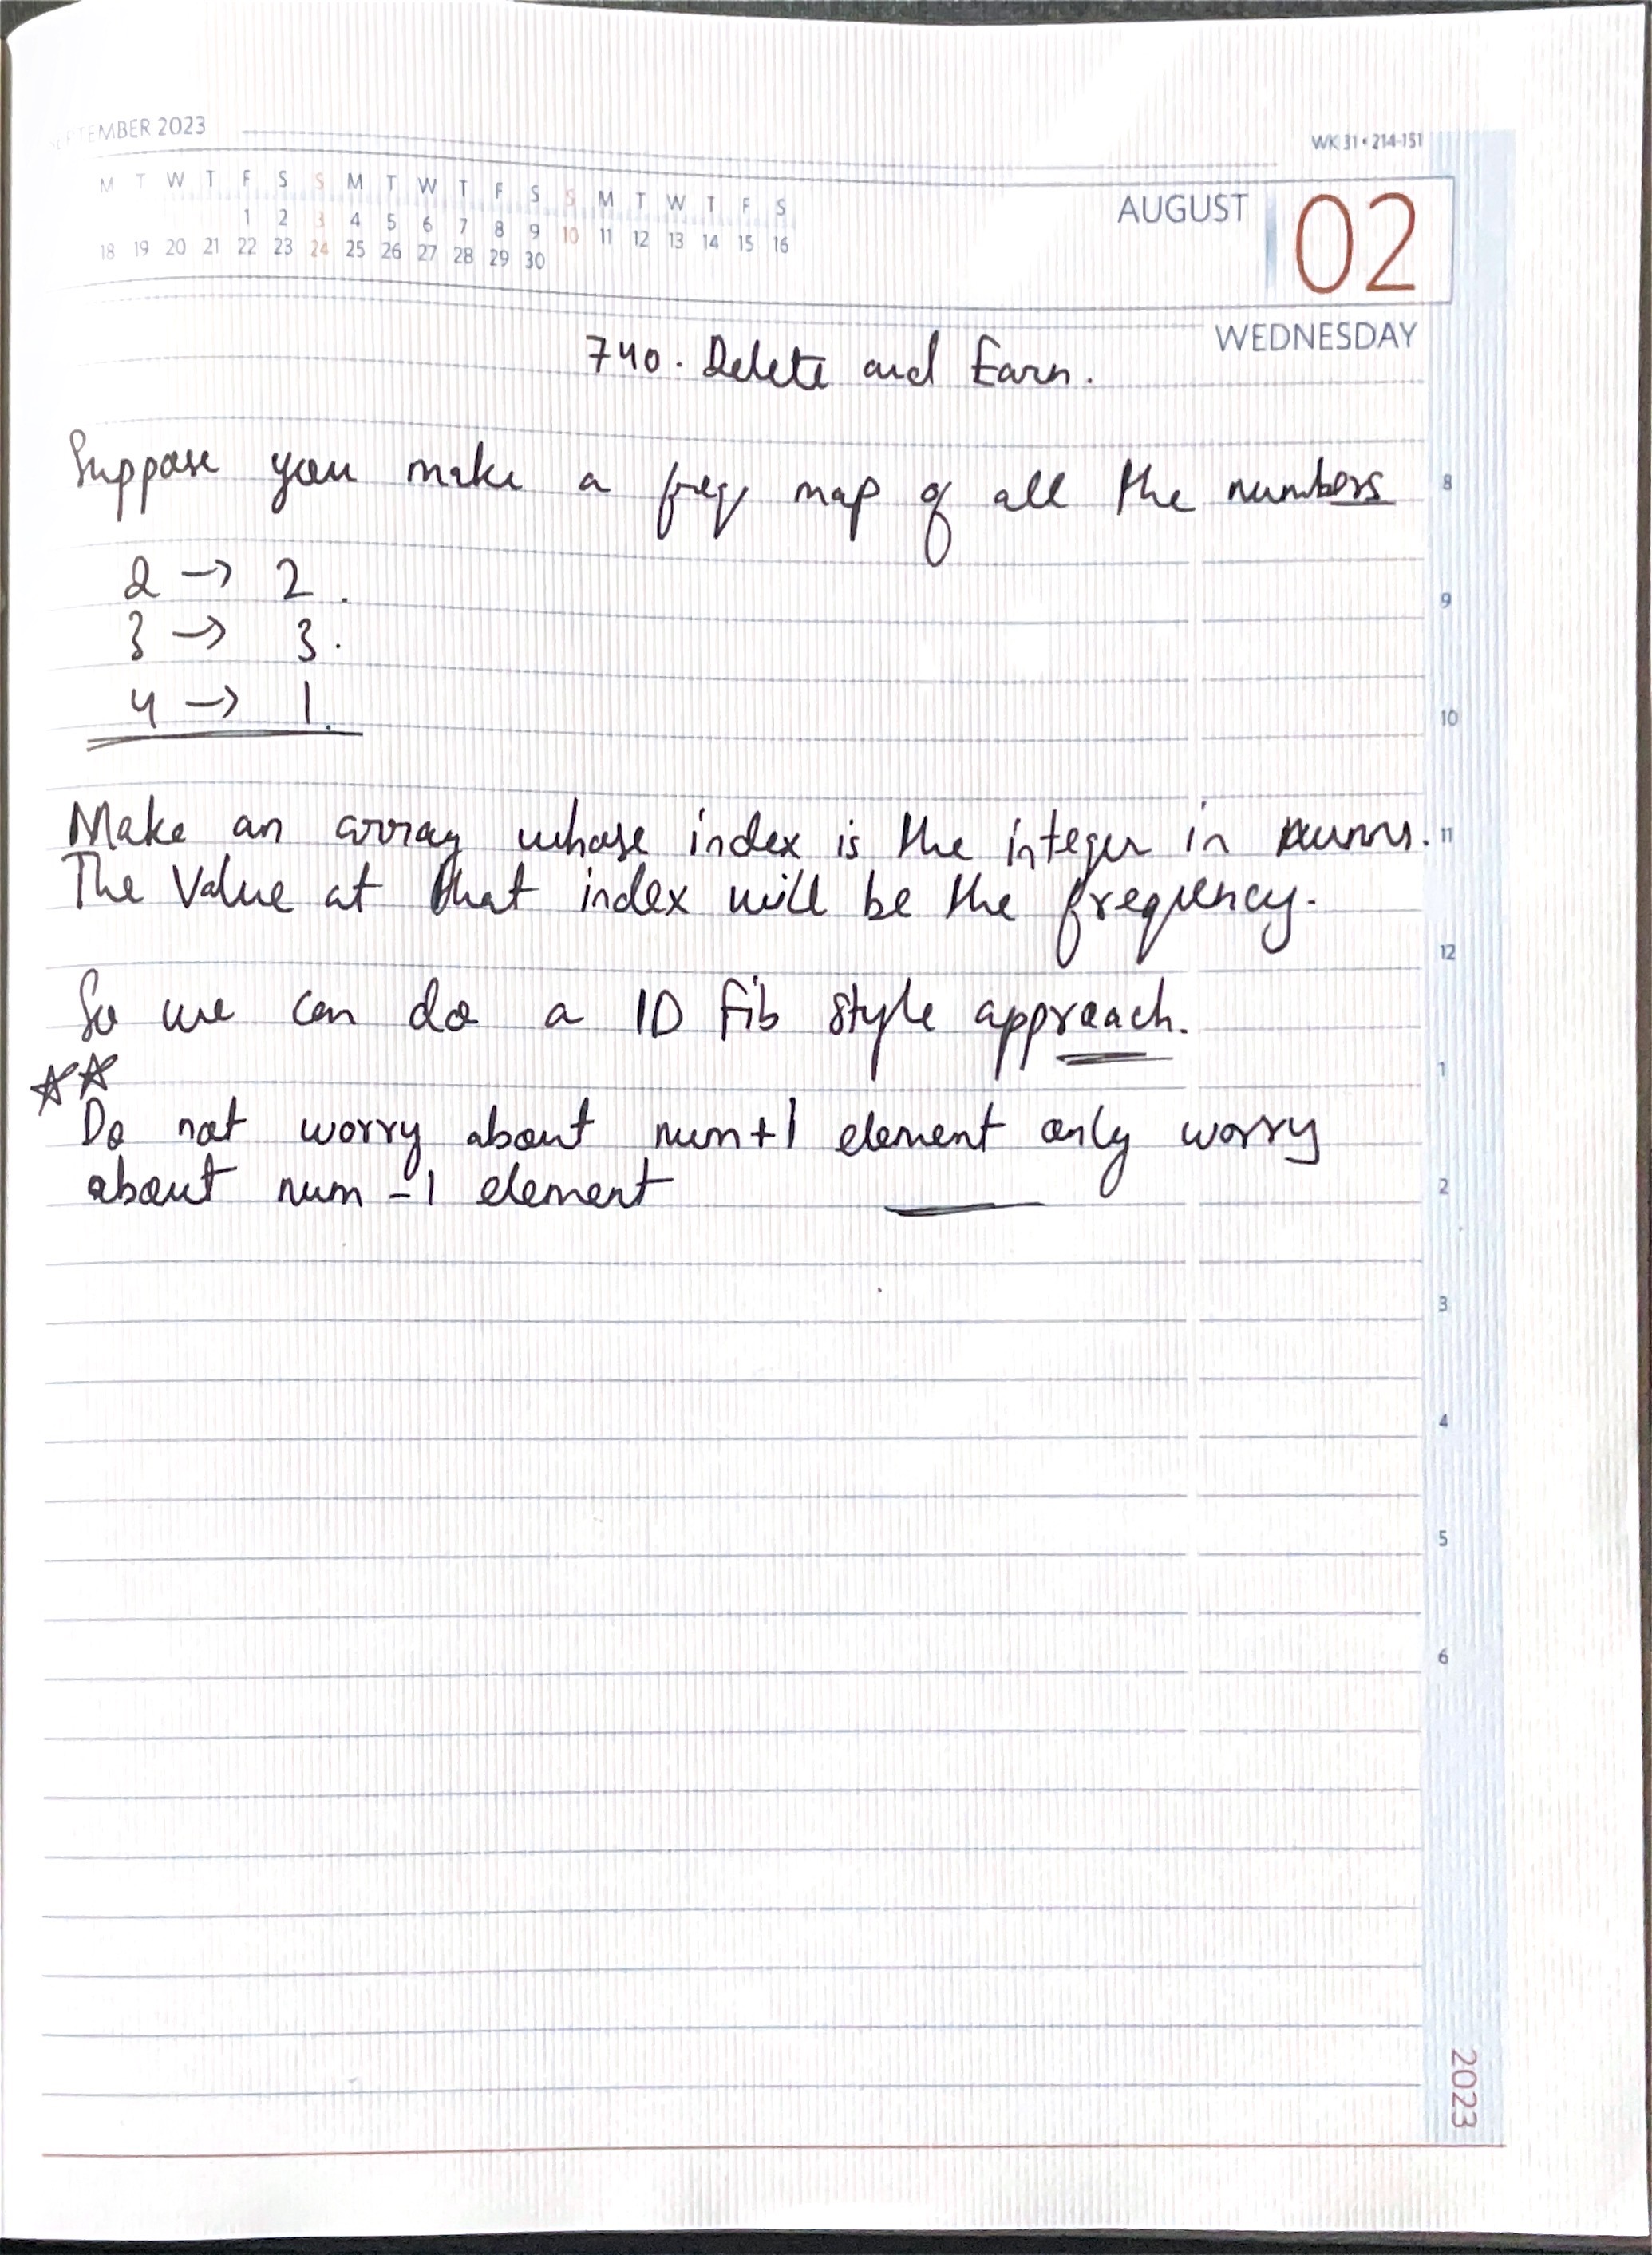 SEPTEMBER 2023
WK 31 • 214-151
M T W T F S S M T W T F S S M T W T F S
1 2 3 4 5 6 7 8 9 10 11 12 13 14 15 16
18 19 20 21 22 23 24 25 26 27 28 29 30
AUGUST 02
WEDNESDAY
740. Delete and Earn.
Suppose you make a freq map of all the numbers
8
2 → 2.
9
3 → 3.
4 → 1.
10
Make an array whose index is the integer in nums.
11
The Value at that index will be the frequency.
12
So we can do a 1D Fib style approach.
1
☆☆
Do not worry about num+1 element only worry
about num -1 element
2
3
4
5
6
2023